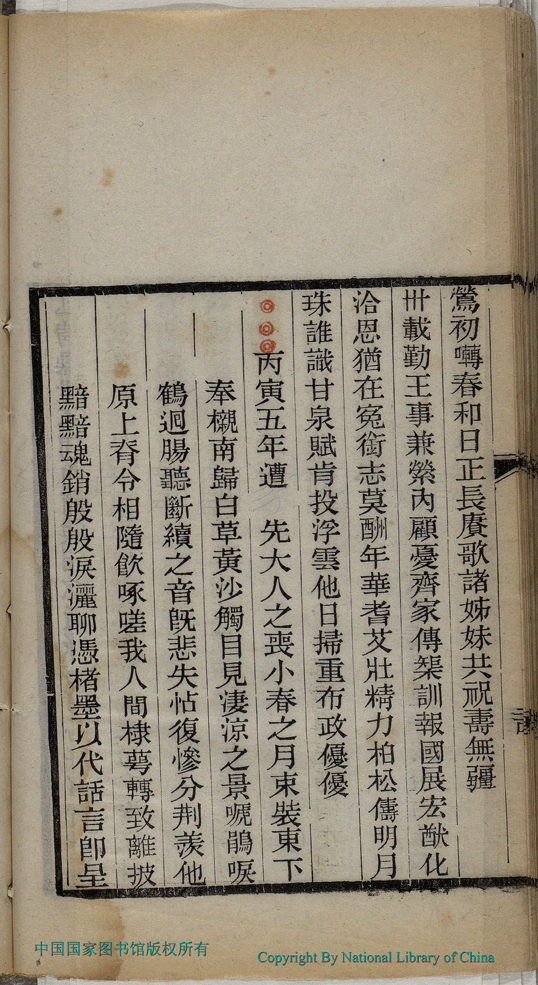 鶯初囀春和日正長賡歌諸姊妹共祝壽無疆
卅載勤王事兼縈內顧憂齊家傳榘訓報國展宏猷化
洽恩猶在冤銜志莫酬年華耆艾壯精力柏松儔明月
珠誰識甘泉賦肯投浮雲他日掃重布政優優
丙寅五年遭　先大人之喪小春之月束裝東下
奉櫬南歸白草黃沙觸目見淒涼之景嗁鵑唳
鶴迴腸聽斷續之音旣悲失怙復慘分荆羨他
原上脊令相隨飮啄嗟我人間棣萼轉致離披
黯黯魂銷殷殷淚灑聊憑楮墨以代話言卽呈
中国国家图书馆版权所有
Copyright By National Library of China